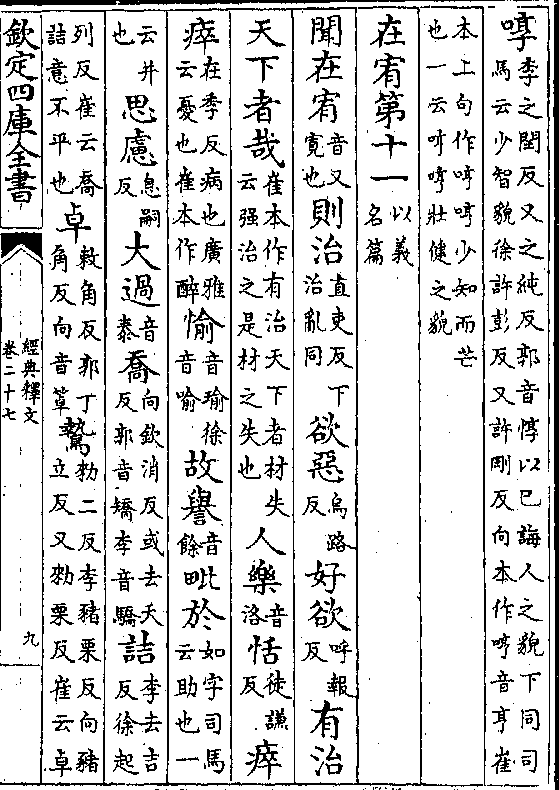 啍李之閏反又之純反郭音惇以已誨人之貌下同司馬云少智貌徐許彭反又許剛反向本作哼音亨崔
本上句作啍啍少知而芒也一云啍啍壯健之貌
在宥第十一以義名篇
聞在宥音又寛也則治直吏反下治亂同欲惡烏路反好欲呼報反有治
天下者哉崔本作有治天下者材失云强治之是材之失也人樂音洛恬徒謙反瘁
在季反病也廣雅云憂也崔本作醉愉音瑜徐音喻故譽音餘毗於如字司馬云助也一
云并也思慮息嗣反大過音泰喬向欽消反或去夭反郭音矯李音驕詰李去吉反徐起
列反崔云喬詰意不平也卓敕角反郭丁角反向音罩鷙勑二反李豬栗反向豬立反又勑栗反崔云卓
欽定四庫全書
經典釋文
卷二十七
九